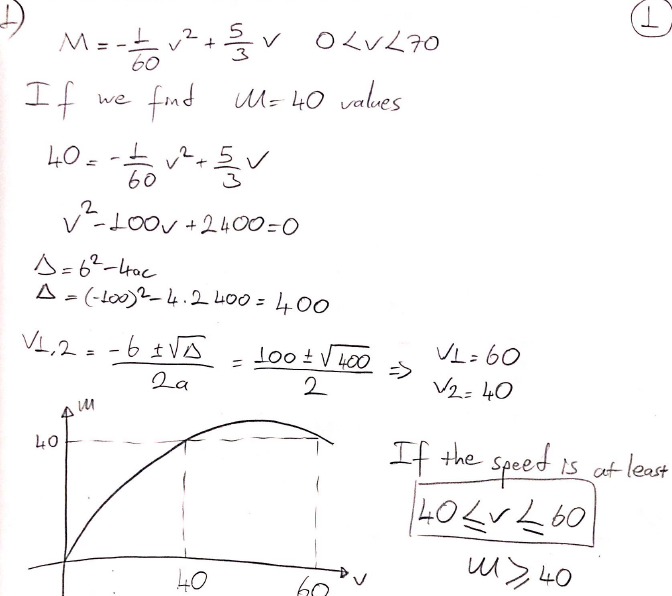 1)
1
M = -1/60 v² + 5/3 v 0<v<70
If we find M=40 values
40 = -1/60 v² + 5/3 v
v²-100v+2400=0
Δ=b²-4ac
Δ = (-100)²-4.2400 = 400
V1,2 = -b ±√Δ / 2a = 100 ± √400 / 2 ⇒ V1=60
V2=40
M
40
If the speed is at least
40≤v≤60
M⩾40
40 60 v